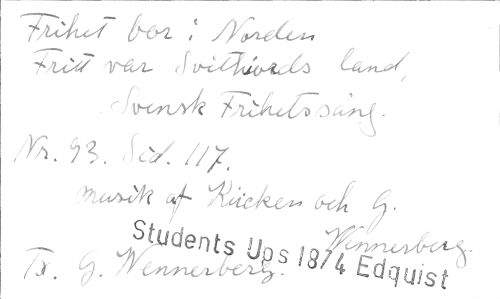 Frihet bor i Norden
Fritt var Svithiods land,
Svensk Frihetssång.
Nr. 93. Sid. 117.
musik af Kücken och G.
Wennerberg.
Students Ups 1874 Edquist
Tx. G. Wennerberg.